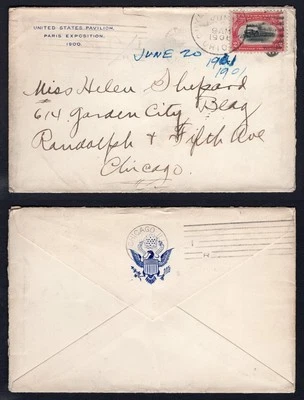 UNITED STATES PAVILION,
PARIS EXPOSITION,
1900.
JUNE 20
1901
Miss Helen Shepard
614 Garden City Bldg
Randolph & Fifth Ave
Chicago.
CHICAGO